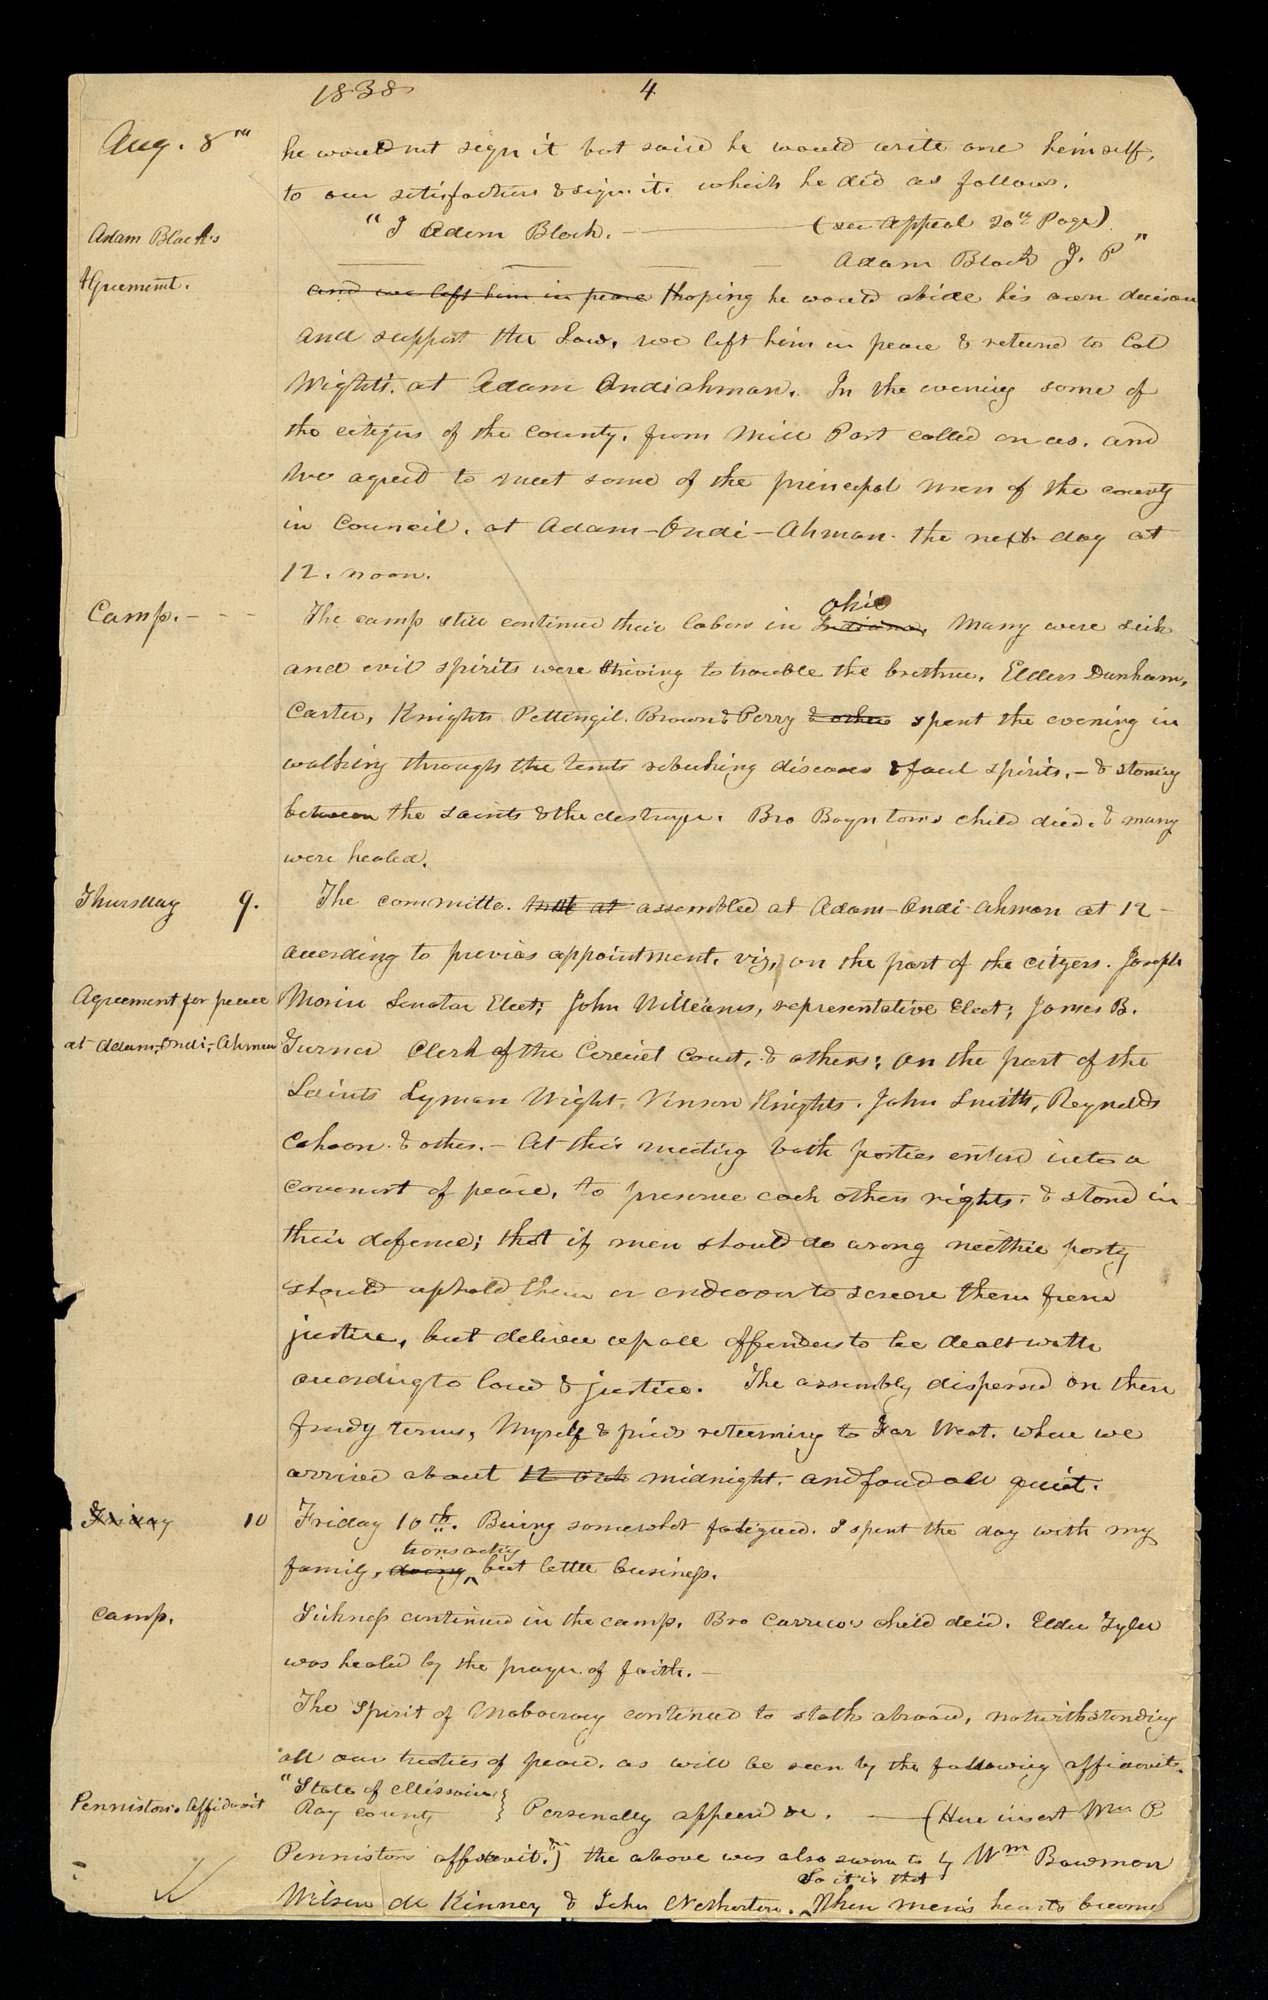 1838 4
Aug. 8th
he would not sign it but said he would write one himself,
to our satisfaction & sign it. which he did as follows.
Adam Black's
"I Adam Black. — (see Appeal 20th Page)
Adam Black J. P"
Agreement.
and we left him in peace hoping he would abide his own decison
and support the Law, we left him in peace & returnd to Col
Wight's. at Adam Ondiahman. In the evening some of
the citizens of the county. from Mill Port called on us. and
we agreed to meet some of the principal men of the county
in Council. at Adam-Ondi-Ahman. the next day at
12. noon.
Camp. - - -
The camp still continued their labors in Indiana, ohio Many were sick
and evil spirits were striving to trouble the brethren, Elders Dunham,
Carter, Knights Pettengil. Brown & Perry & others spent the evening in
walking through the tents rebuking diseases & foul spirits, - & standing
between the saints & the destroyer. Bro Boyntons child died. & many
were healed.
Thursday 9.
The committe. met at assembled at Adam-Ondi-ahman at 12 -
according to previos appointment. viz, on the part of the citizens. Joseph
Agreement for peace
at Adam-Ondi-Ahman
Morin Senator Elect; John Williams, representative Elect; James B.
Turner Clerk of the Circuit Court, & others; on the part of the
Saints Lyman Wight. Vinson Knights. John Smith, Reynolds
Cahoon. & others. - At this meeting both parties enterd into a
covenant of peace, to preserve each others rights. & stand in
their defence; that if men should do wrong neithie party
should uphold them or endeavor to screen them from
justice, but deliver up all offenders to be dealt with
according to law & justice. The assembly dispersed on these
frindy terms, Myself & frinds returning to Far West. where we
arrived about 12 oclk midnight. and found all quiet.
Friday 10
Friday 10th. Being somewhat fatigued. I spent the day with my
family, doing transacting but little business.
camp.
Sickness continued in the camp. Bro Carrico's child died. Elder Tyler
was healed by the prayer of faith. -
The spirit of Mobocracy continued to stalk abroad, notwithstanding
all our treaties of peace. as will be seen by the following affidavit.
Penniston's Affidavit
"State of Missouri
Ray county } Personally appeerd &c. — (Here insert Wm P
Pennistons affidavit. &) the above was also sworn to by Wm Bowman
Wilson Mc Kinney & John Netherton. So it is that When men's hearts become